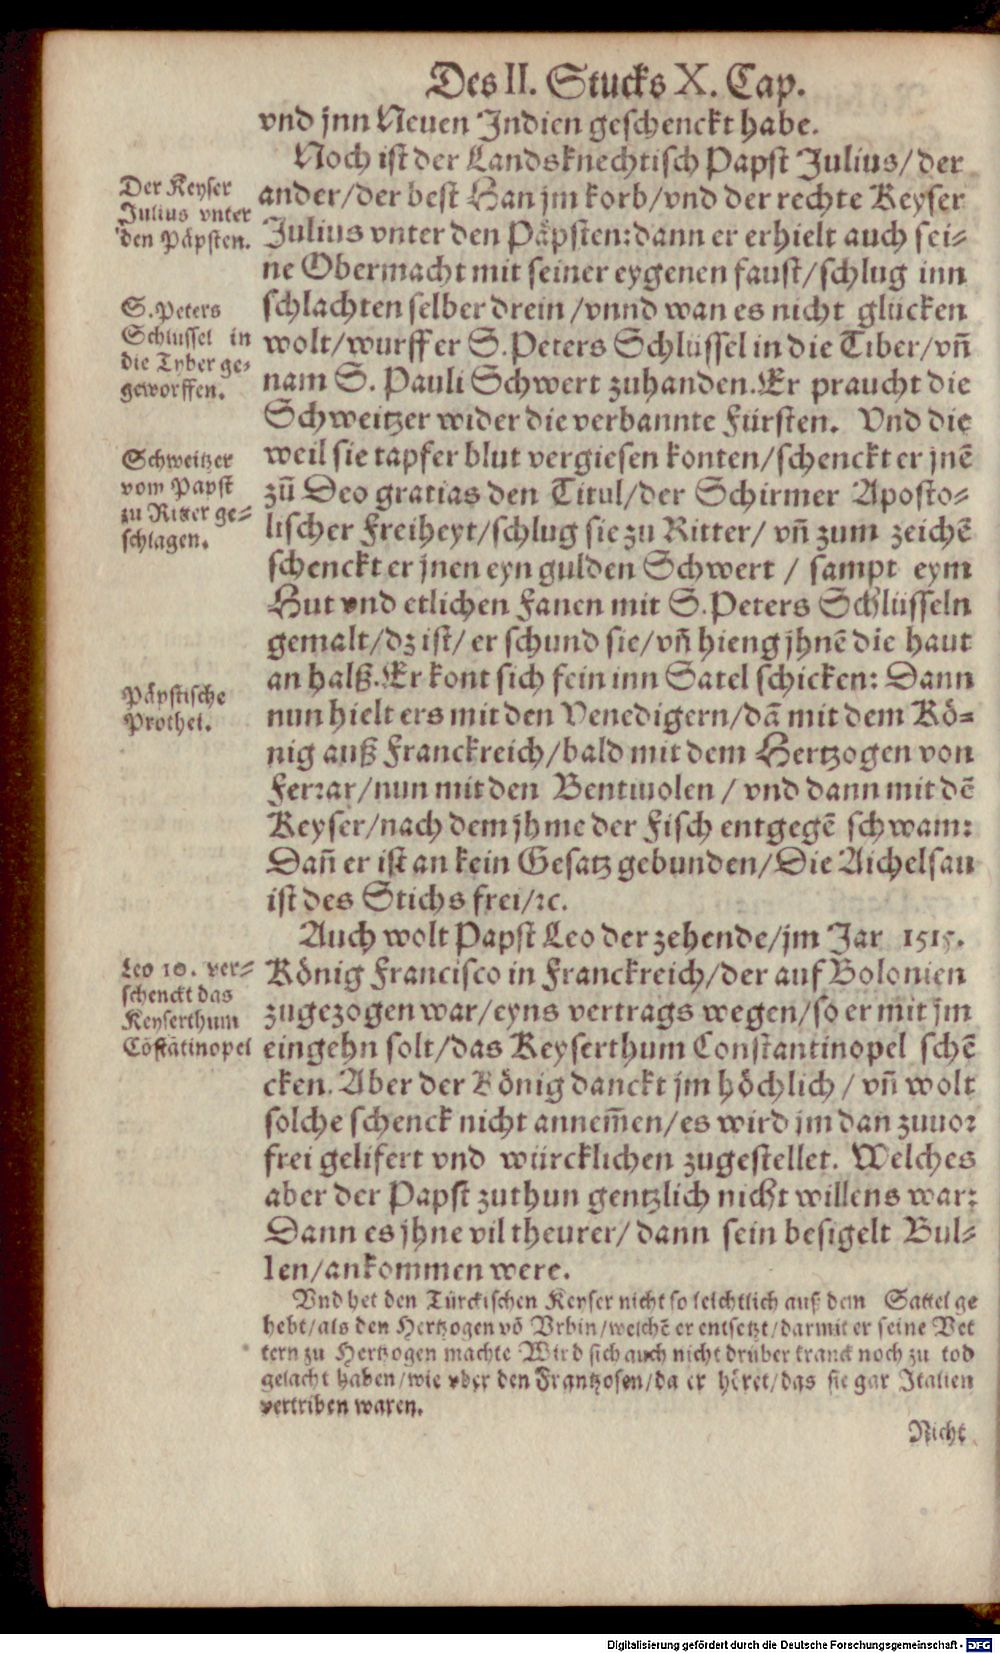 Des II. Stucks X. Cap.
vnd jnn Neuen Indien geschenckt habe.
Noch ist der Landsknechtisch Papst Julius/ der
ander/der best Han jm korb/vnd der rechte Keyser
Julius vnter den Päpsten: dann er erhielt auch sei-
ne Obermacht mit seiner eygenen faust/schlug inn
schlachten selber drein /vnnd wan es nicht glücken
wolt/wurff er S.Peters Schlüssel in die Tiber/vñ
nam S. Pauli Schwert zuhanden.Er praucht die
Schweitzer wider die verbannte Fürsten. Vnd die
weil sie tapfer blut vergiesen konten/schenckt er jnē
zū Deo gratias den Titul/der Schirmer Aposto-
lischer Freiheyt/schlug sie zu Ritter/ vñ zum zeichē
schenckt er jnen eyn gulden Schwert / sampt eym
Hut vnd etlichen Fanen mit S.Peters Schlüsseln
gemalt/dz ist/ er schund sie/vñ hieng jhnē die haut
an halß.Er kont sich fein inn Satel schicken: Dann
nun hielt ers mit den Venedigern/dā mit dem Kö-
nig auß Franckreich/bald mit dem Hertzogen von
Ferrar/nun mit den Bentiuolen / vnd dann mit dē
Keyser/nach dem jhme der Fisch entgegē schwam:
Dañ er ist an kein Gesatz gebunden/Die Aichelsau
ist des Stichs frei/ꝛc.
Auch wolt Papst Leo der zehende/jm Jar 1515.
König Francisco in Franckreich/der auf Bolonien
zugezogen war/eyns vertrags wegen/so er mit jm
eingehn solt/das Keyserthum Constantinopel schē
cken. Aber der König danckt jm höchlich / vñ wolt
solche schenck nicht annem̄en/es wird jm dan zuuor
frei gelifert vnd würcklichen zugestellet. Welches
aber der Papst zuthun gentzlich nicht willens war:
Dann es jhne vil theurer/ dann sein besigelt Bul-
len/ankommen were.
Vnd het den Türckischen Keyser nicht so leichtlich auß dem Sattel ge
hebt/als den Hertzogen vō Vrbin/welchē er entsetzt/darmit er seine Vet
tern zu Hertzogen machte Wird sich auch nicht drüber kranck noch zu tod
gelacht haben/wie vber den Frantzosen/da er höret/das sie gar Italien
vertriben waren.
Nicht
Der Keyser
Julius vnter
den Päpsten.
S.Peters
Schlussel in
die Tyber ge-
geworffen.
Schweitzer
vom Papst
zu Ritter ge-
schlagen.
Päpstische
Prothei.
Leo 10. ver-
schenckt das
Keyserthum
Cōstātinopel
Digitalisierung gefördert durch die Deutsche Forschungsgemeinschaft - DFG